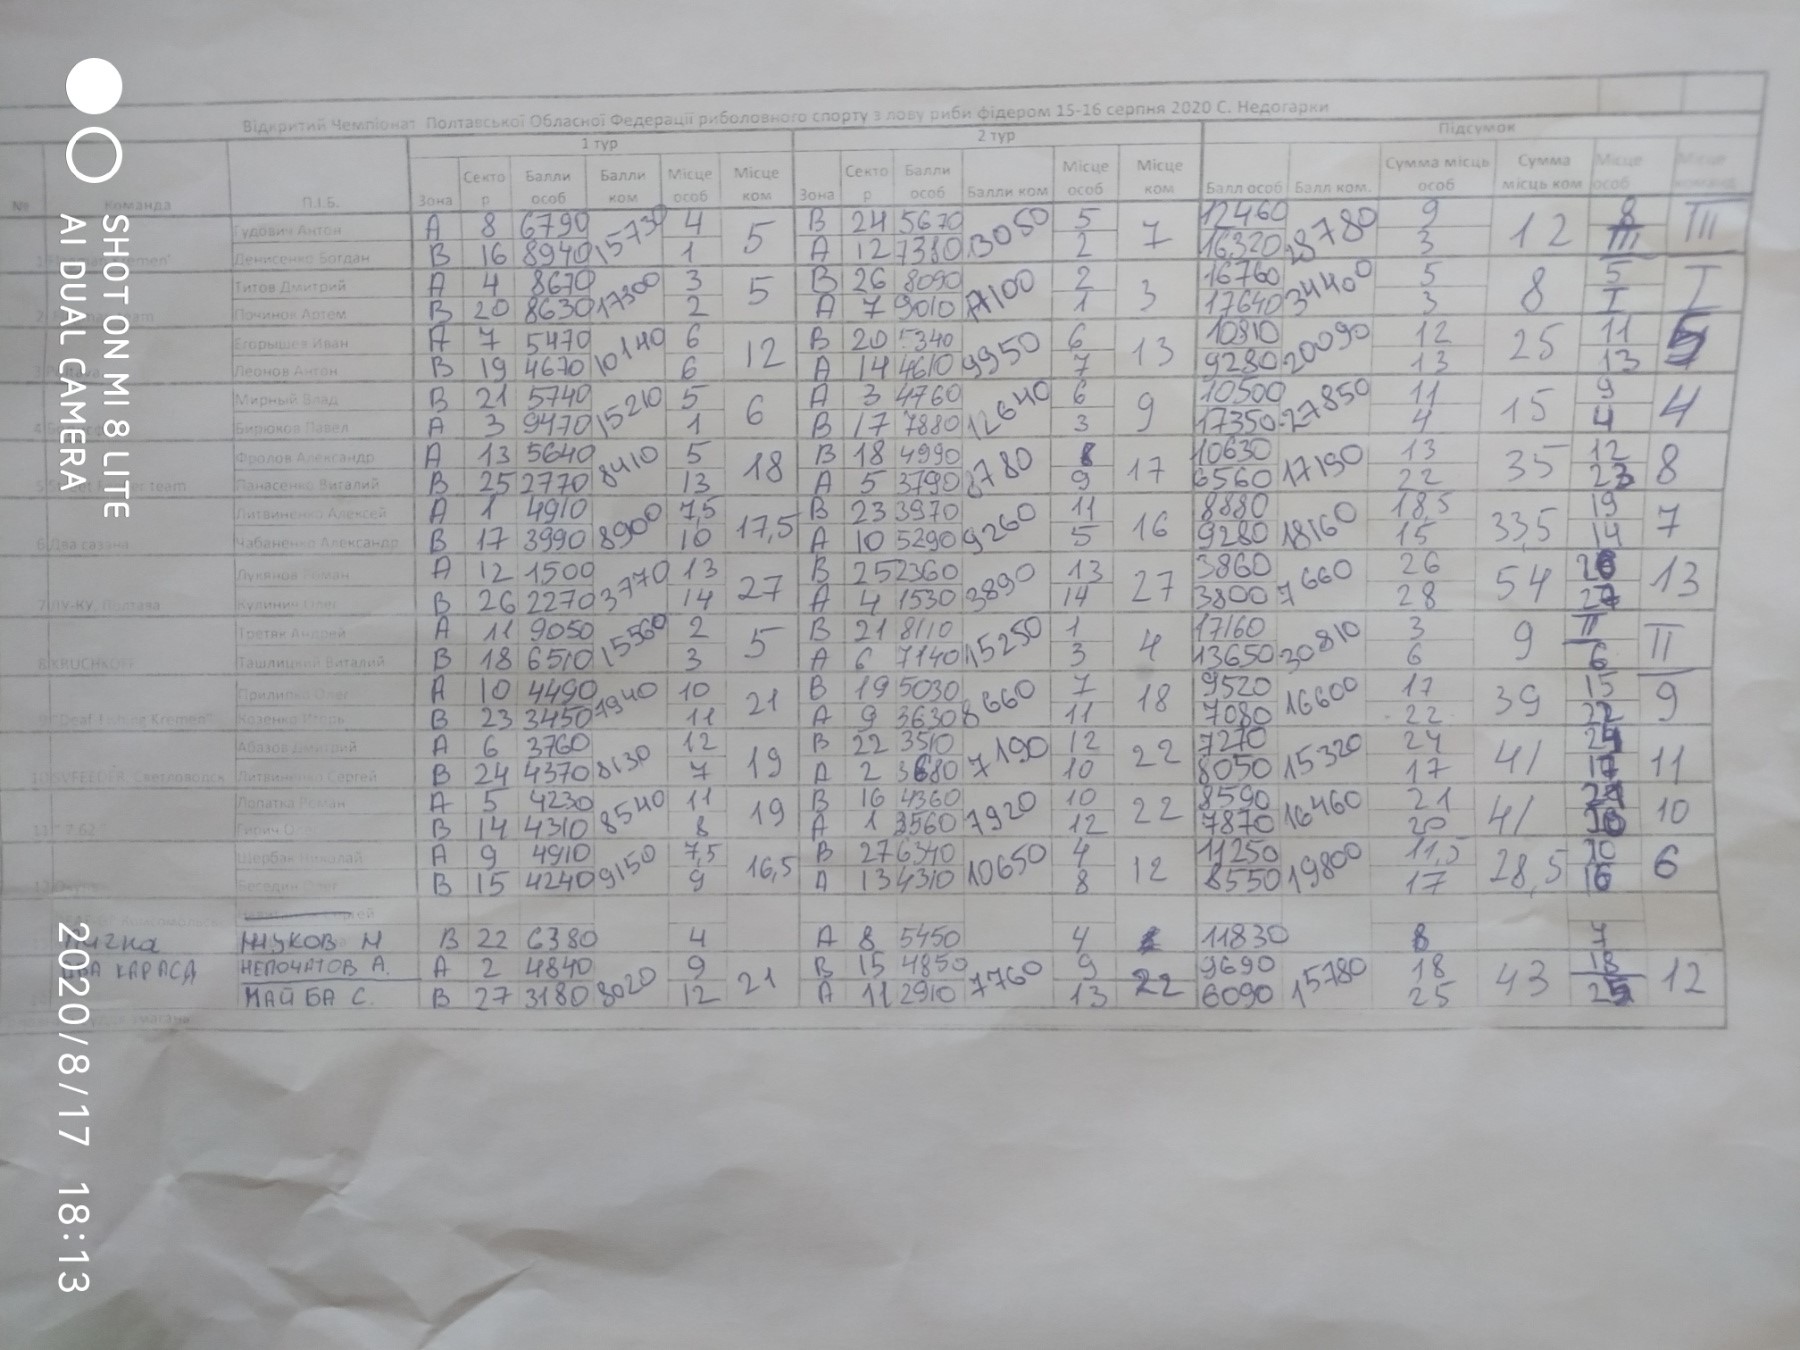 Відкритий Чемпіонат Полтавської Обласної Федерації риболовного спорту з лову риби фідером 15-16 серпня 2020 С. Недогарки
1 тур 2 тур Підсумок
№ команда П.І.Б. Зона Сектор Балли особ Балли ком Місце особ Місце ком Зона Сектор Балли особ Балли ком Місце особ Місце ком Балл особ Балл ком. Сумма місць особ Сумма місць ком Місце особ Місце команд
Гудович Антон А 8 6790 15730 4 5 В 24 5670 13050 5 7 12460 28780 9 12 8 III
Денисенко Богдан В 16 8940 1 А 12 7380 2 16320 3 III
Титов Дмитрий А 4 8670 17300 3 5 В 26 8090 17100 2 3 16760 34400 5 8 5 I
Починов Артем В 20 8630 2 А 7 9010 1 17640 3 I
Егорышев Иван А 7 5470 10140 6 12 В 20 5340 9950 6 13 10810 20090 12 25 11 5
Леонов Антон В 19 4670 6 А 14 4610 7 9280 13 13
Мирный Влад В 21 5740 15210 5 6 А 3 4760 12640 6 9 10500 27850 11 15 9 4
Бирюков Павел А 3 9470 1 В 17 7880 3 17350 4 4
Фролов Александр А 13 5640 8410 5 18 В 18 4990 8780 8 17 10630 17190 13 35 12 8
5 team Панасенко Виталий В 25 2770 13 А 5 3790 9 6560 22 23
Литвиненко Алексей А 1 4910 8900 7,5 17,5 В 23 3970 9260 11 16 8880 18160 18,5 33,5 19 7
6 Два сазана Чабаненко Александр В 17 3990 10 А 10 5290 5 9280 15 14
Лукянов Роман А 12 1500 3770 13 27 В 25 2360 3890 13 27 3860 7660 26 54 26 13
7 ЛУ-КУ, Полтава Кулинич Олег В 26 2270 14 А 4 1530 14 3800 28 27
Третяк Андрей А 11 9050 15560 2 5 В 21 8110 15250 1 4 17160 30810 3 9 II II
8 KRUCHKOFF Ташлицкий Виталий В 18 6510 3 А 6 7140 3 13650 6 6
Прилипко Олег А 10 4490 7940 10 21 В 19 5030 8660 7 18 9520 16600 17 39 15 9
9 "Deaf Fishing Kremen" Козенко Игорь В 23 3450 11 А 9 3630 11 7080 22 22
Абазов Дмитрий А 6 3760 8130 12 19 В 22 3510 7190 12 22 7270 15320 24 41 24 11
10 FEEDER, Светловодск Литвиненко Сергей В 24 4370 7 А 2 3680 10 8050 17 17
Лопатка Роман А 5 4230 8540 11 19 В 16 4360 7920 10 22 8590 16460 21 41 10
11 "7.62" Гирич В 14 4310 8 А 1 3560 12 7870 20 20
Щербак Николай А 9 4910 9150 7,5 16,5 В 27 6340 10650 4 12 11250 19800 11,5 28,5 10 6
12 Беседин Олег В 15 4240 9 А 13 4310 8 8550 17 16
Лична ЖУКОВ М В 22 6380 4 А 8 5450 4 11830 8 7
ДВА КАРАСЯ НЕПОЧАТОВ А. А 2 4840 8020 9 21 В 15 4850 7760 9 22 9690 15780 18 43 18 12
МАЙБА С. В 27 3180 12 А 11 2910 13 6090 25 25
SHOT ON MI 8 LITE
AI DUAL CAMERA
2020/8/17 18:13